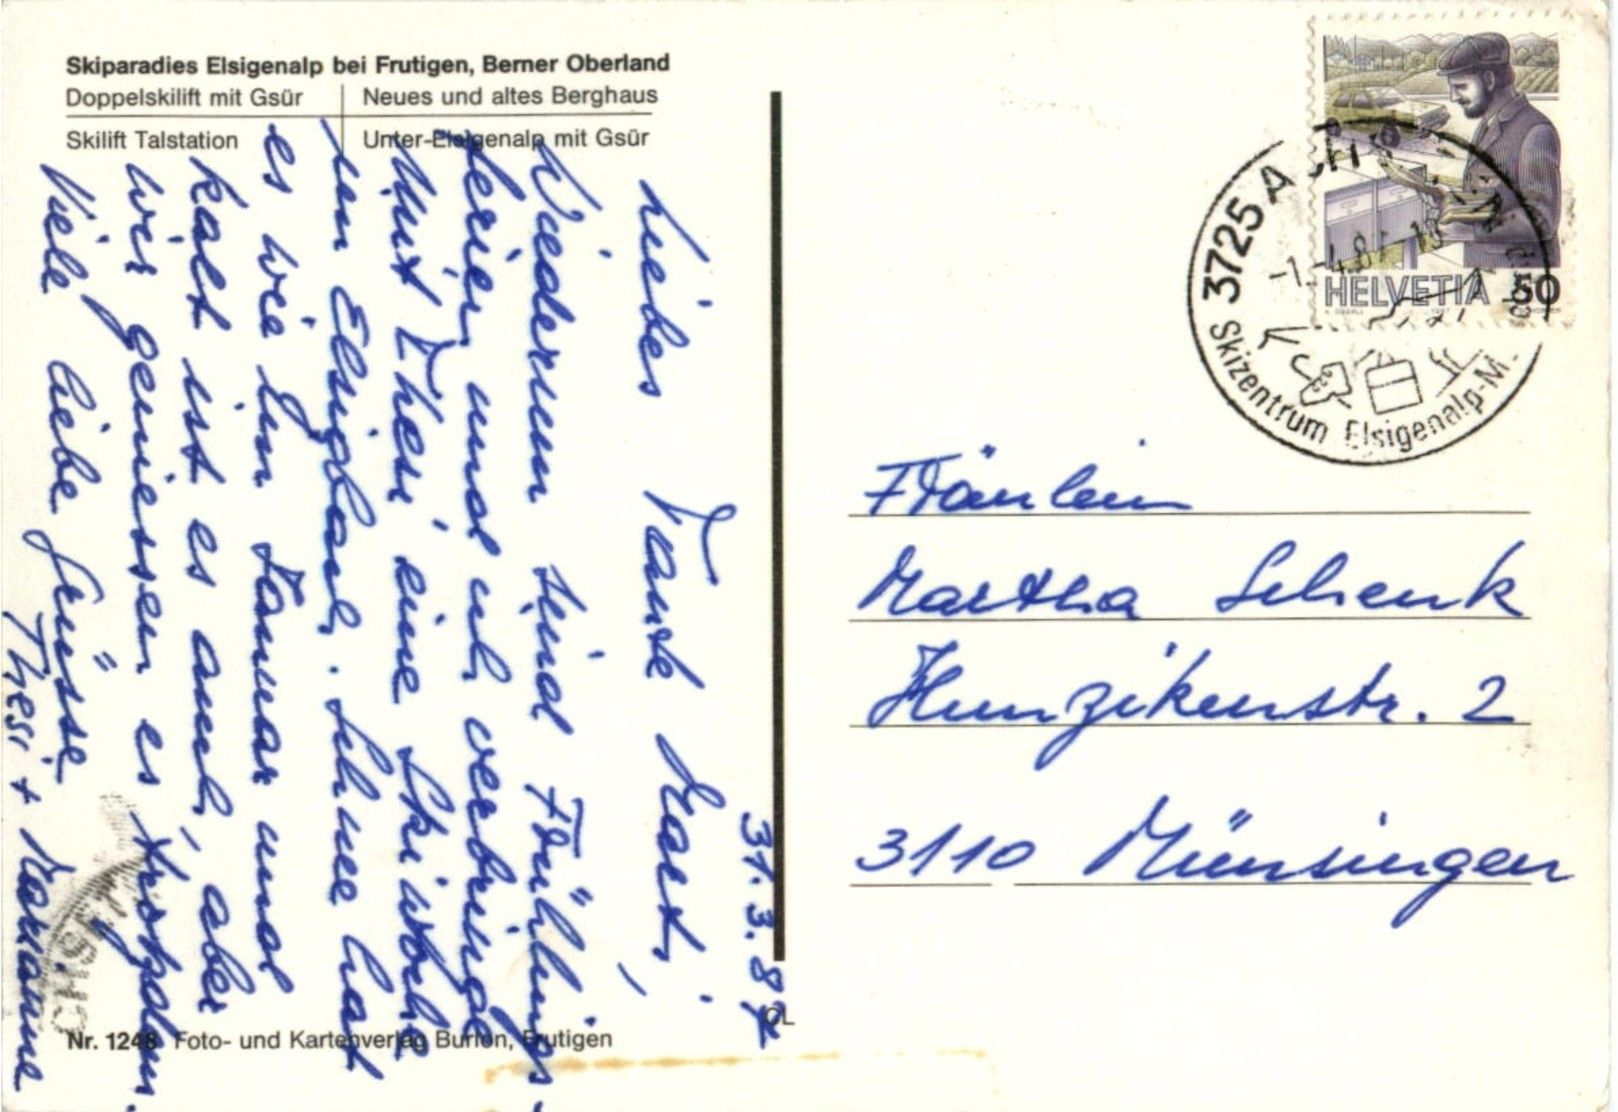 Skiparadies Elsigenalp bei Frutigen, Berner Oberland
Doppelskilift mit Gsür
Neues und altes Berghaus
Skilift Talstation
Unter-Elsigenalp mit Gsür
31.3.87
Liebes Tante Marti,
Wiederum sind Frühlings-
ferien und ich verbringe
mit Thesi eine Skiwoche
im Elsigbach. Schnee hat
es wie im Januar und
kalt ist es auch, aber
wir geniessen es trotzdem.
Viele liebe Grüsse
Thesi + Marianne
Nr. 1248 Foto- und Kartenverlag Burlon, Frutigen
CL
HELVETIA 50
3725
Skizentrum Elsigenalp-M.
Fräulein
Martha Schenk
Hunzikenstr. 2
3110 Münsingen